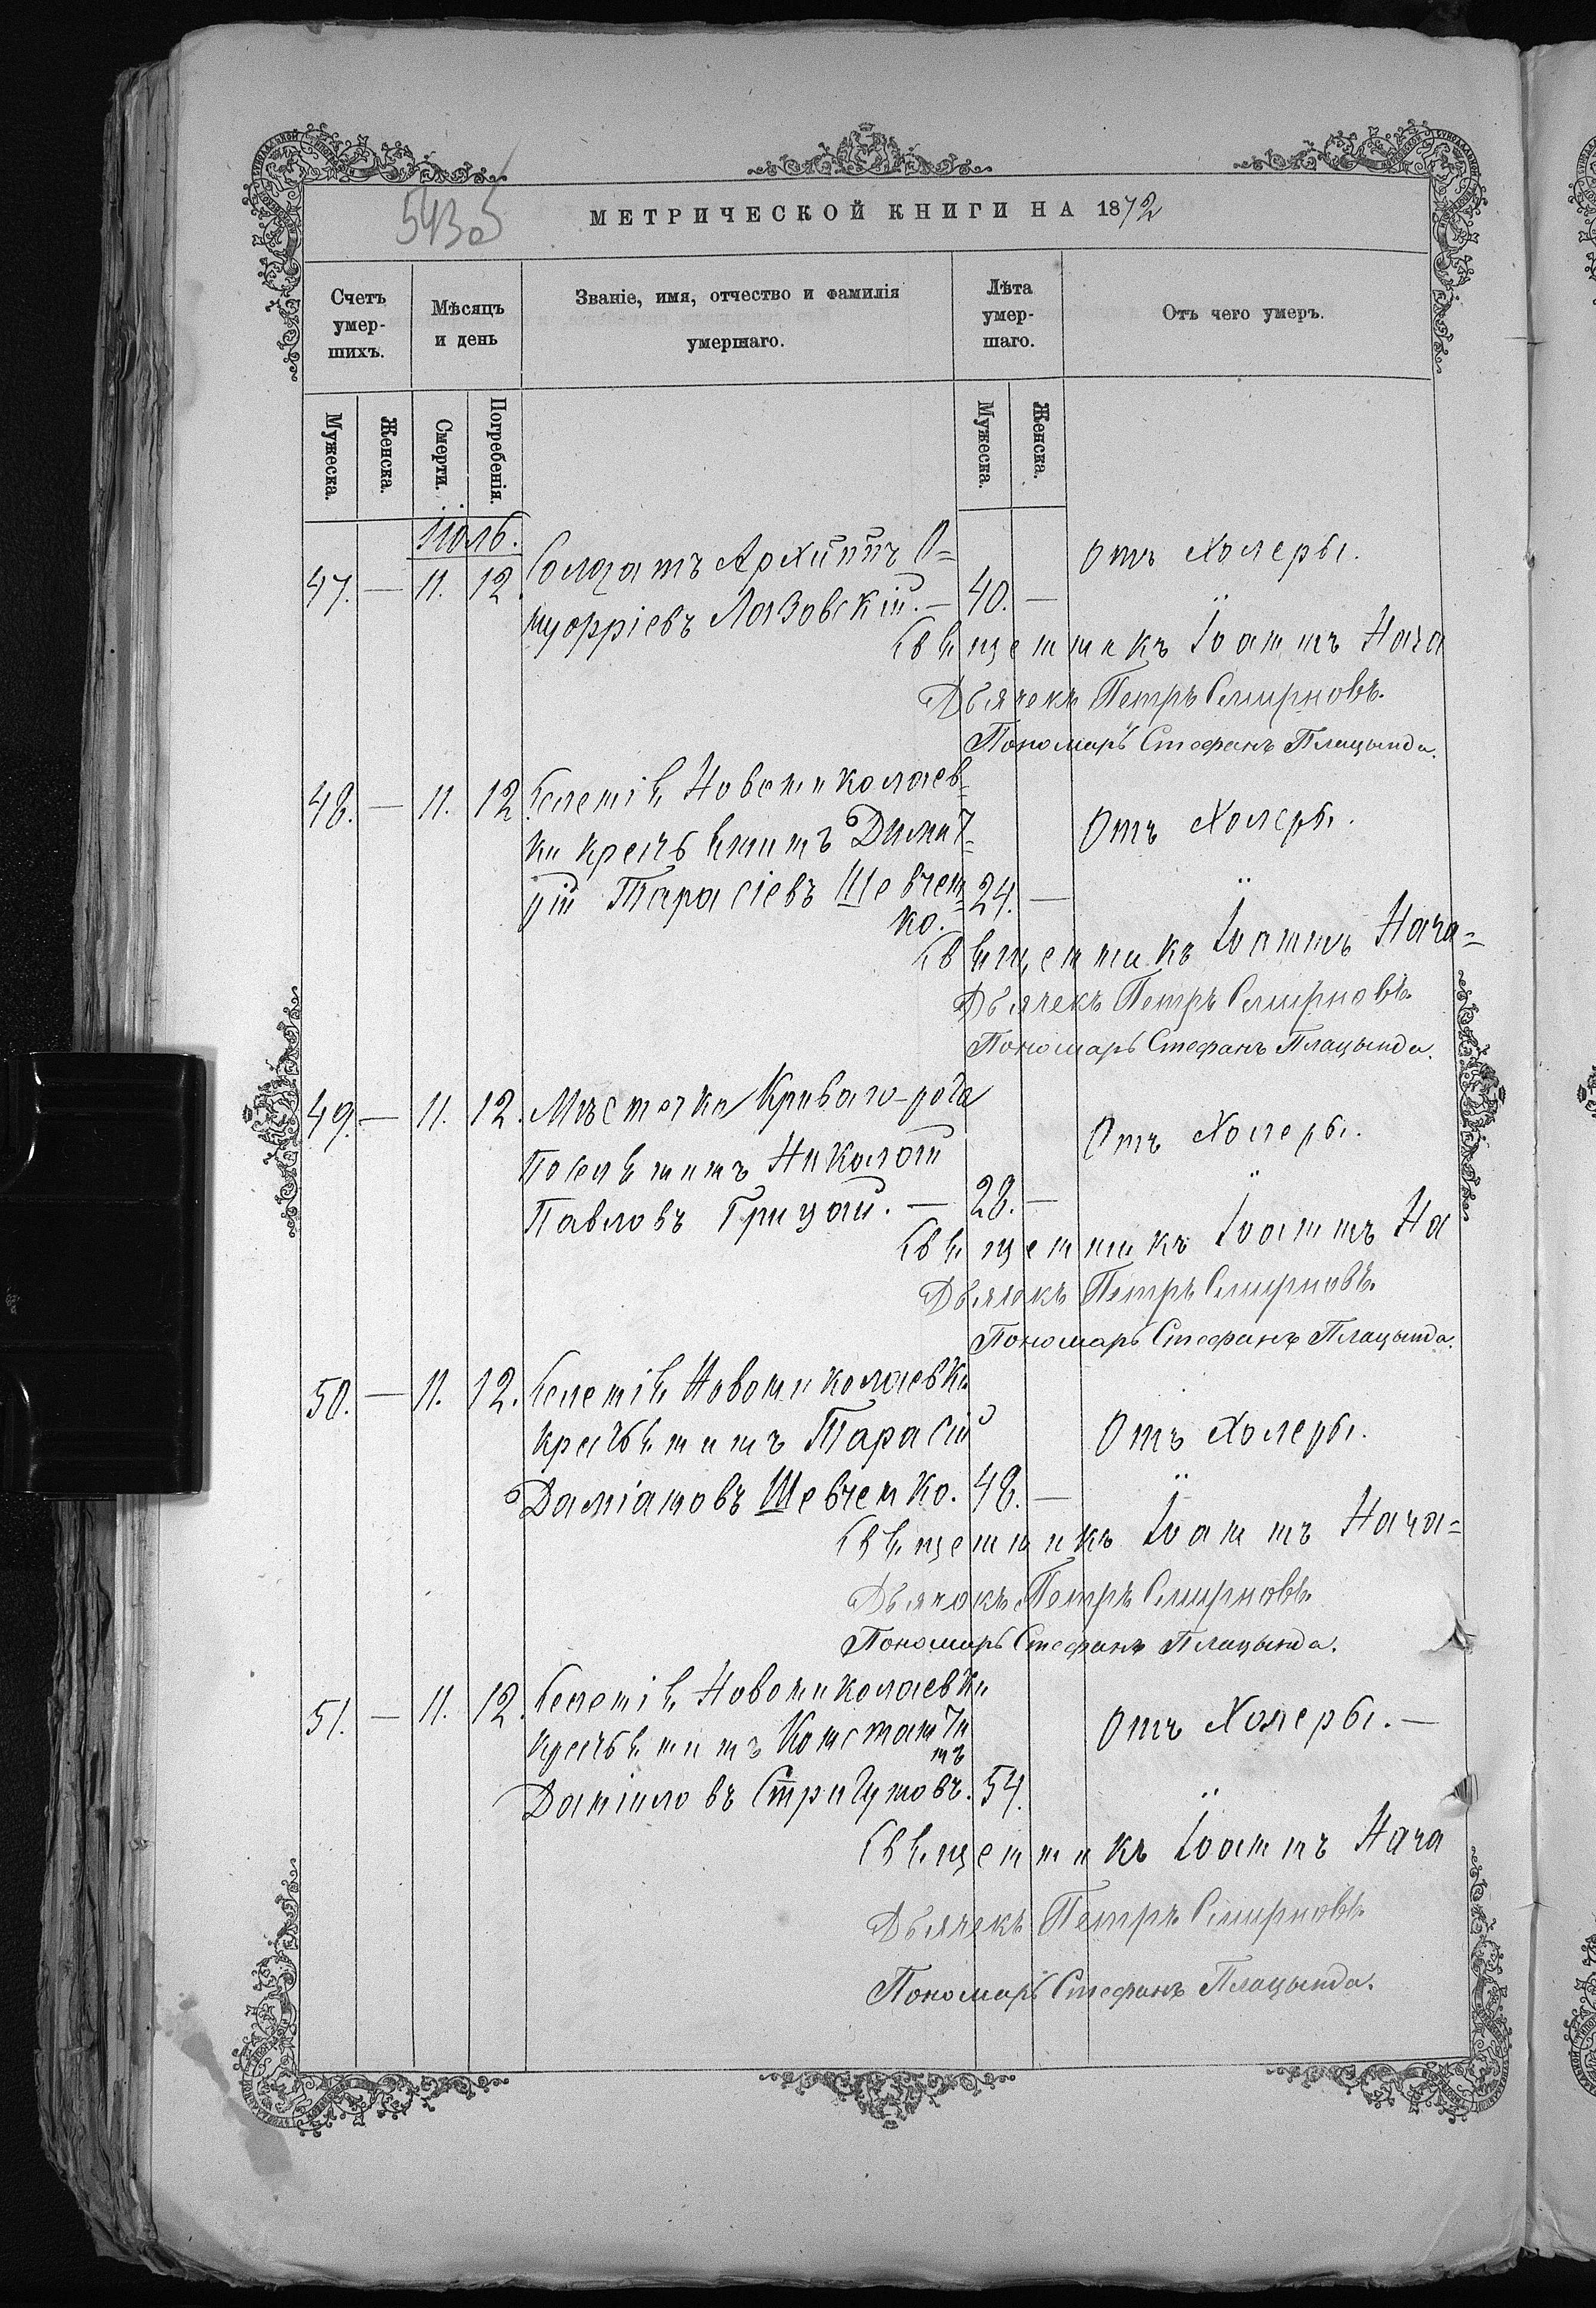 543об
МЕТРИЧЕСКОЙ КНИГИ НА 1872
Счетъ умер-шихъ.
Мѣсяцъ и день
Званіе, имя, отчество и фамилія умершаго.
Лѣта умер-шаго.
Отъ чего умеръ.
Мужеска.
Женска.
Смерти.
Погребенія.
Мужеска.
Женска.
Іюль.
47. — 11. 12. Солдатъ Архиппъ О=
нуфріевъ Лозовскій. — 40. —
Отъ Холеры.
Священникъ Іоаннъ Нача
Дьячекъ Петръ Смирновъ.
Пономарь Стефанъ Плацында.
48. — 11. 12. Селенія Новониколаев=
ки крестьянинъ Димит=
рій Тарасіевъ Шевчен=
ко. 24. —
Отъ Холеры.
Священникъ Іоаннъ Нача=
Дьячекъ Петръ Смирновъ.
Пономарь Стефанъ Плацында.
49. — 11. 12. Мѣстечка Криваго-рога
Поселянинъ Николай
Павловъ Грицай. — 28. —
Отъ Холеры.
Священникъ Іоаннъ На
Дьячекъ Петръ Смирновъ.
Пономарь Стефанъ Плацында.
50. — 11. 12. Селенія Новониколаевки
крестьянинъ Тарасій
Даміановъ Шевченко. 48. —
Отъ Холеры.
Священникъ Іоаннъ Нача=
Дьячокъ Петръ Смирновъ.
Пономарь Стефанъ Плацында.
51. — 11. 12. Селенія Новониколаевки
крестьянинъ Константи
нъ
Даніиловъ Стригуновъ. 54.
Отъ Холеры. —
Священникъ Іоаннъ Нача
Дьячекъ Петръ Смирновъ
Пономарь Стефанъ Плацында.